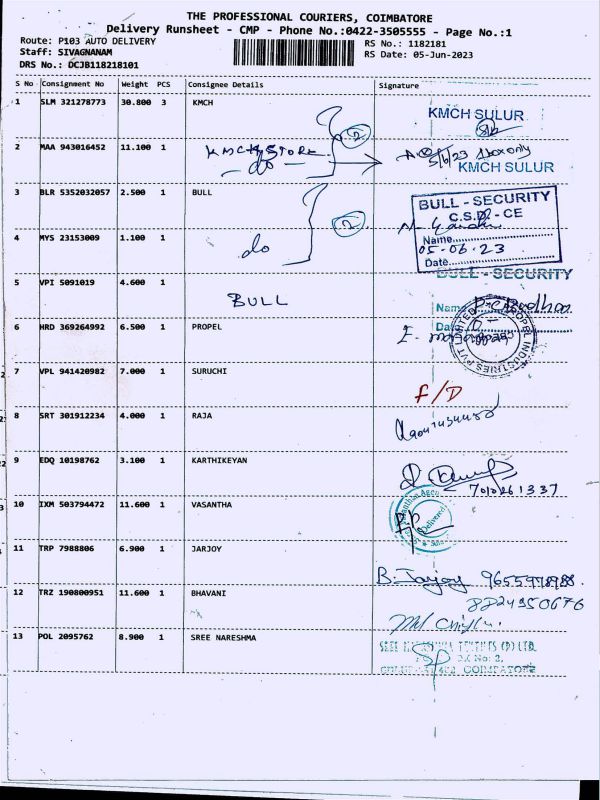 THE PROFESSIONAL COURIERS, COIMBATORE
Delivery Runsheet - CMP - Phone No.:0422-3505555 - Page No.:1
Route: P103 AUTO DELIVERY
RS No.: 1182181
Staff: SIVAGNANAM
RS Date: 05-Jun-2023
DRS No.: DCJB118218101
S No Consignment No Weight PCS Consignee Details Signature
1 SLM 321278773 30.800 3 KMCH
KMCH SULUR
2 MAA 943016452 11.100 1 KMCH STORE
do
5/6/23 1 box only
KMCH SULUR
3 BLR 5352032057 2.500 1 BULL
BULL - SECURITY
C.S.D - CE
4 MYS 23153009 1.100 1 do
Name
05-06-23
Date
5 VPI 5091019 4.600 1 BULL
BULL - SECURITY
Name
Date
6 HRD 369264992 6.500 1 PROPEL
PROPEL INDUSTRIES PVT LIMITED
7 VPL 941420982 7.000 1 SURUCHI
F/D
8 SRT 301912234 4.000 1 RAJA
9 EDQ 10198762 3.100 1 KARTHIKEYAN
10 IXM 503794472 11.600 1 VASANTHA
Delivered
11 TRP 7988806 6.900 1 JARJOY
B. Jarjoy
12 TRZ 190800951 11.600 1 BHAVANI
8224350676
13 POL 2095762 8.900 1 SREE NARESHMA